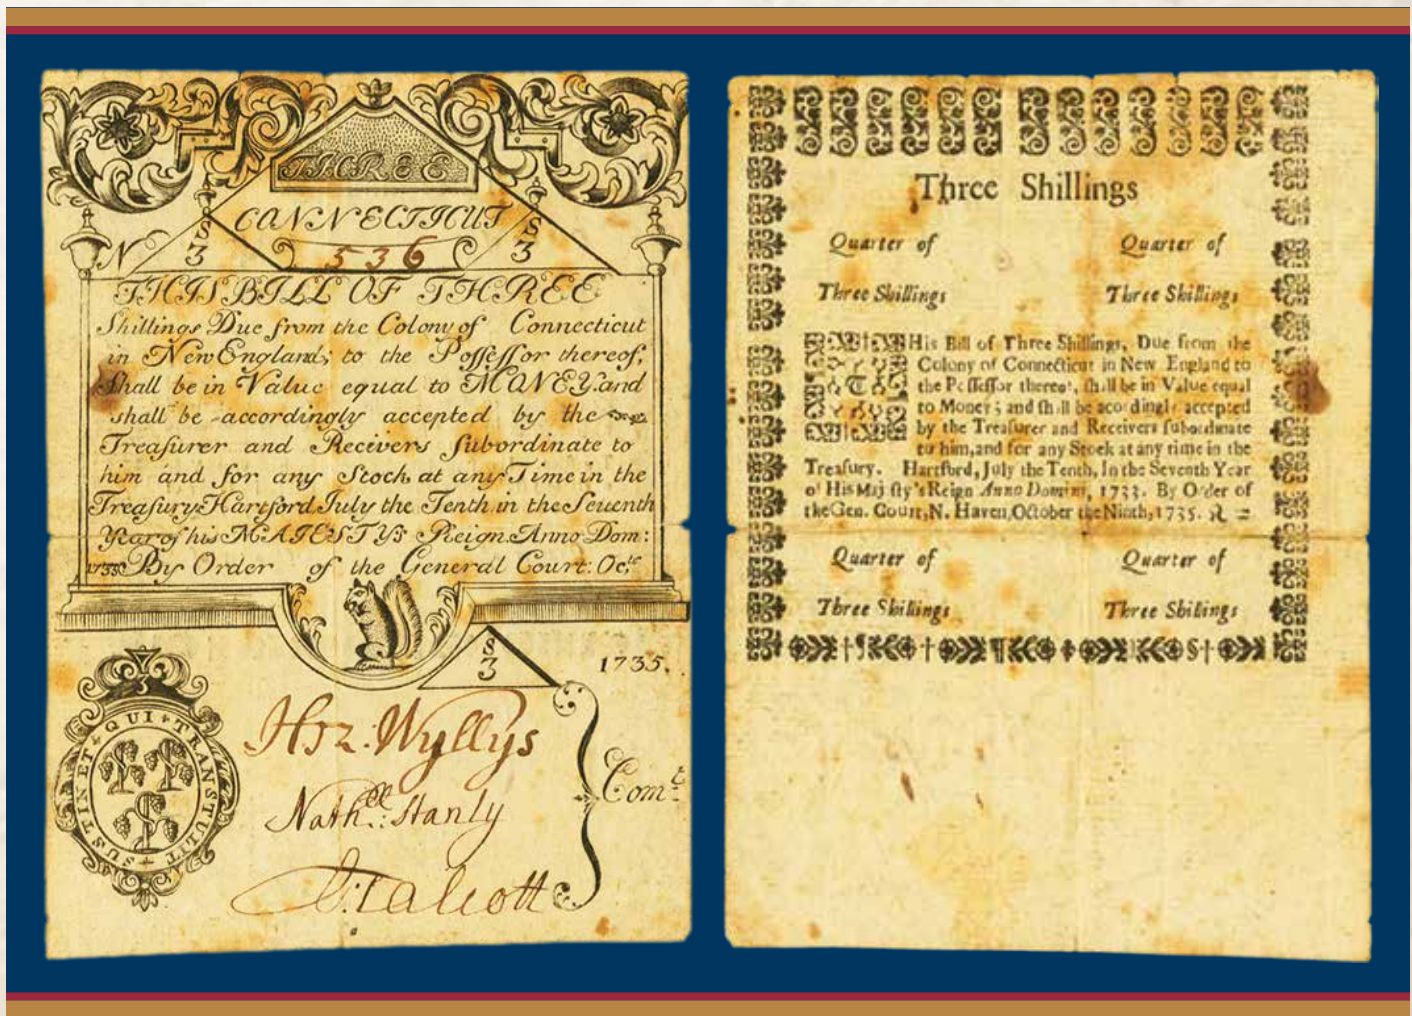 THREE
CONNECTICUT
S
3
S
3
N
536
THIS BILL OF THREE
Shillings Due from the Colony of Connecticut
in New England, to the Poſſeſſor thereof,
Shall be in Value equal to MONEY. and
shall be accordingly accepted by the
Treaſurer and Recivers ſubordinate to
him and for any Stock at any Time in the
Treaſury Hartford July the Tenth in the Seuenth
Year of his MAIESTYS Reign. Anno Dom:
1733 By Order of the General Court: Oct:
S
3
1735.
3
SUSTINET QUI TRANSTULIT
Hez. Wyllys
Nathll: Stanly
J: Talcott
Comt:
Three Shillings
Quarter of Quarter of
Three Shillings Three Shillings
THis Bill of Three Shillings, Due from the
Colony of Connecticut in New England to
the Poſſeſſor thereof, ſhall be in Value equal
to Money; and ſhall be acordingly accepted
by the Treaſurer and Receivers ſubordinate
to him, and for any Stock at any time in the
Treaſury. Hartford, July the Tenth, In the Seventh Year
of His Majeſty's Reign Anno Domini, 1733. By Order of
the Gen. Court, N. Haven, October the Ninth, 1735.
Quarter of Quarter of
Three Shillings Three Shillings